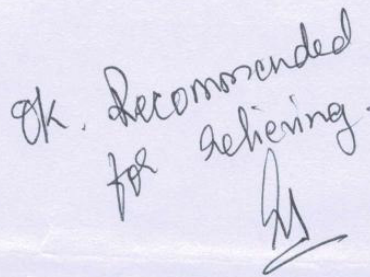 Ok. Recommended
for relieving.